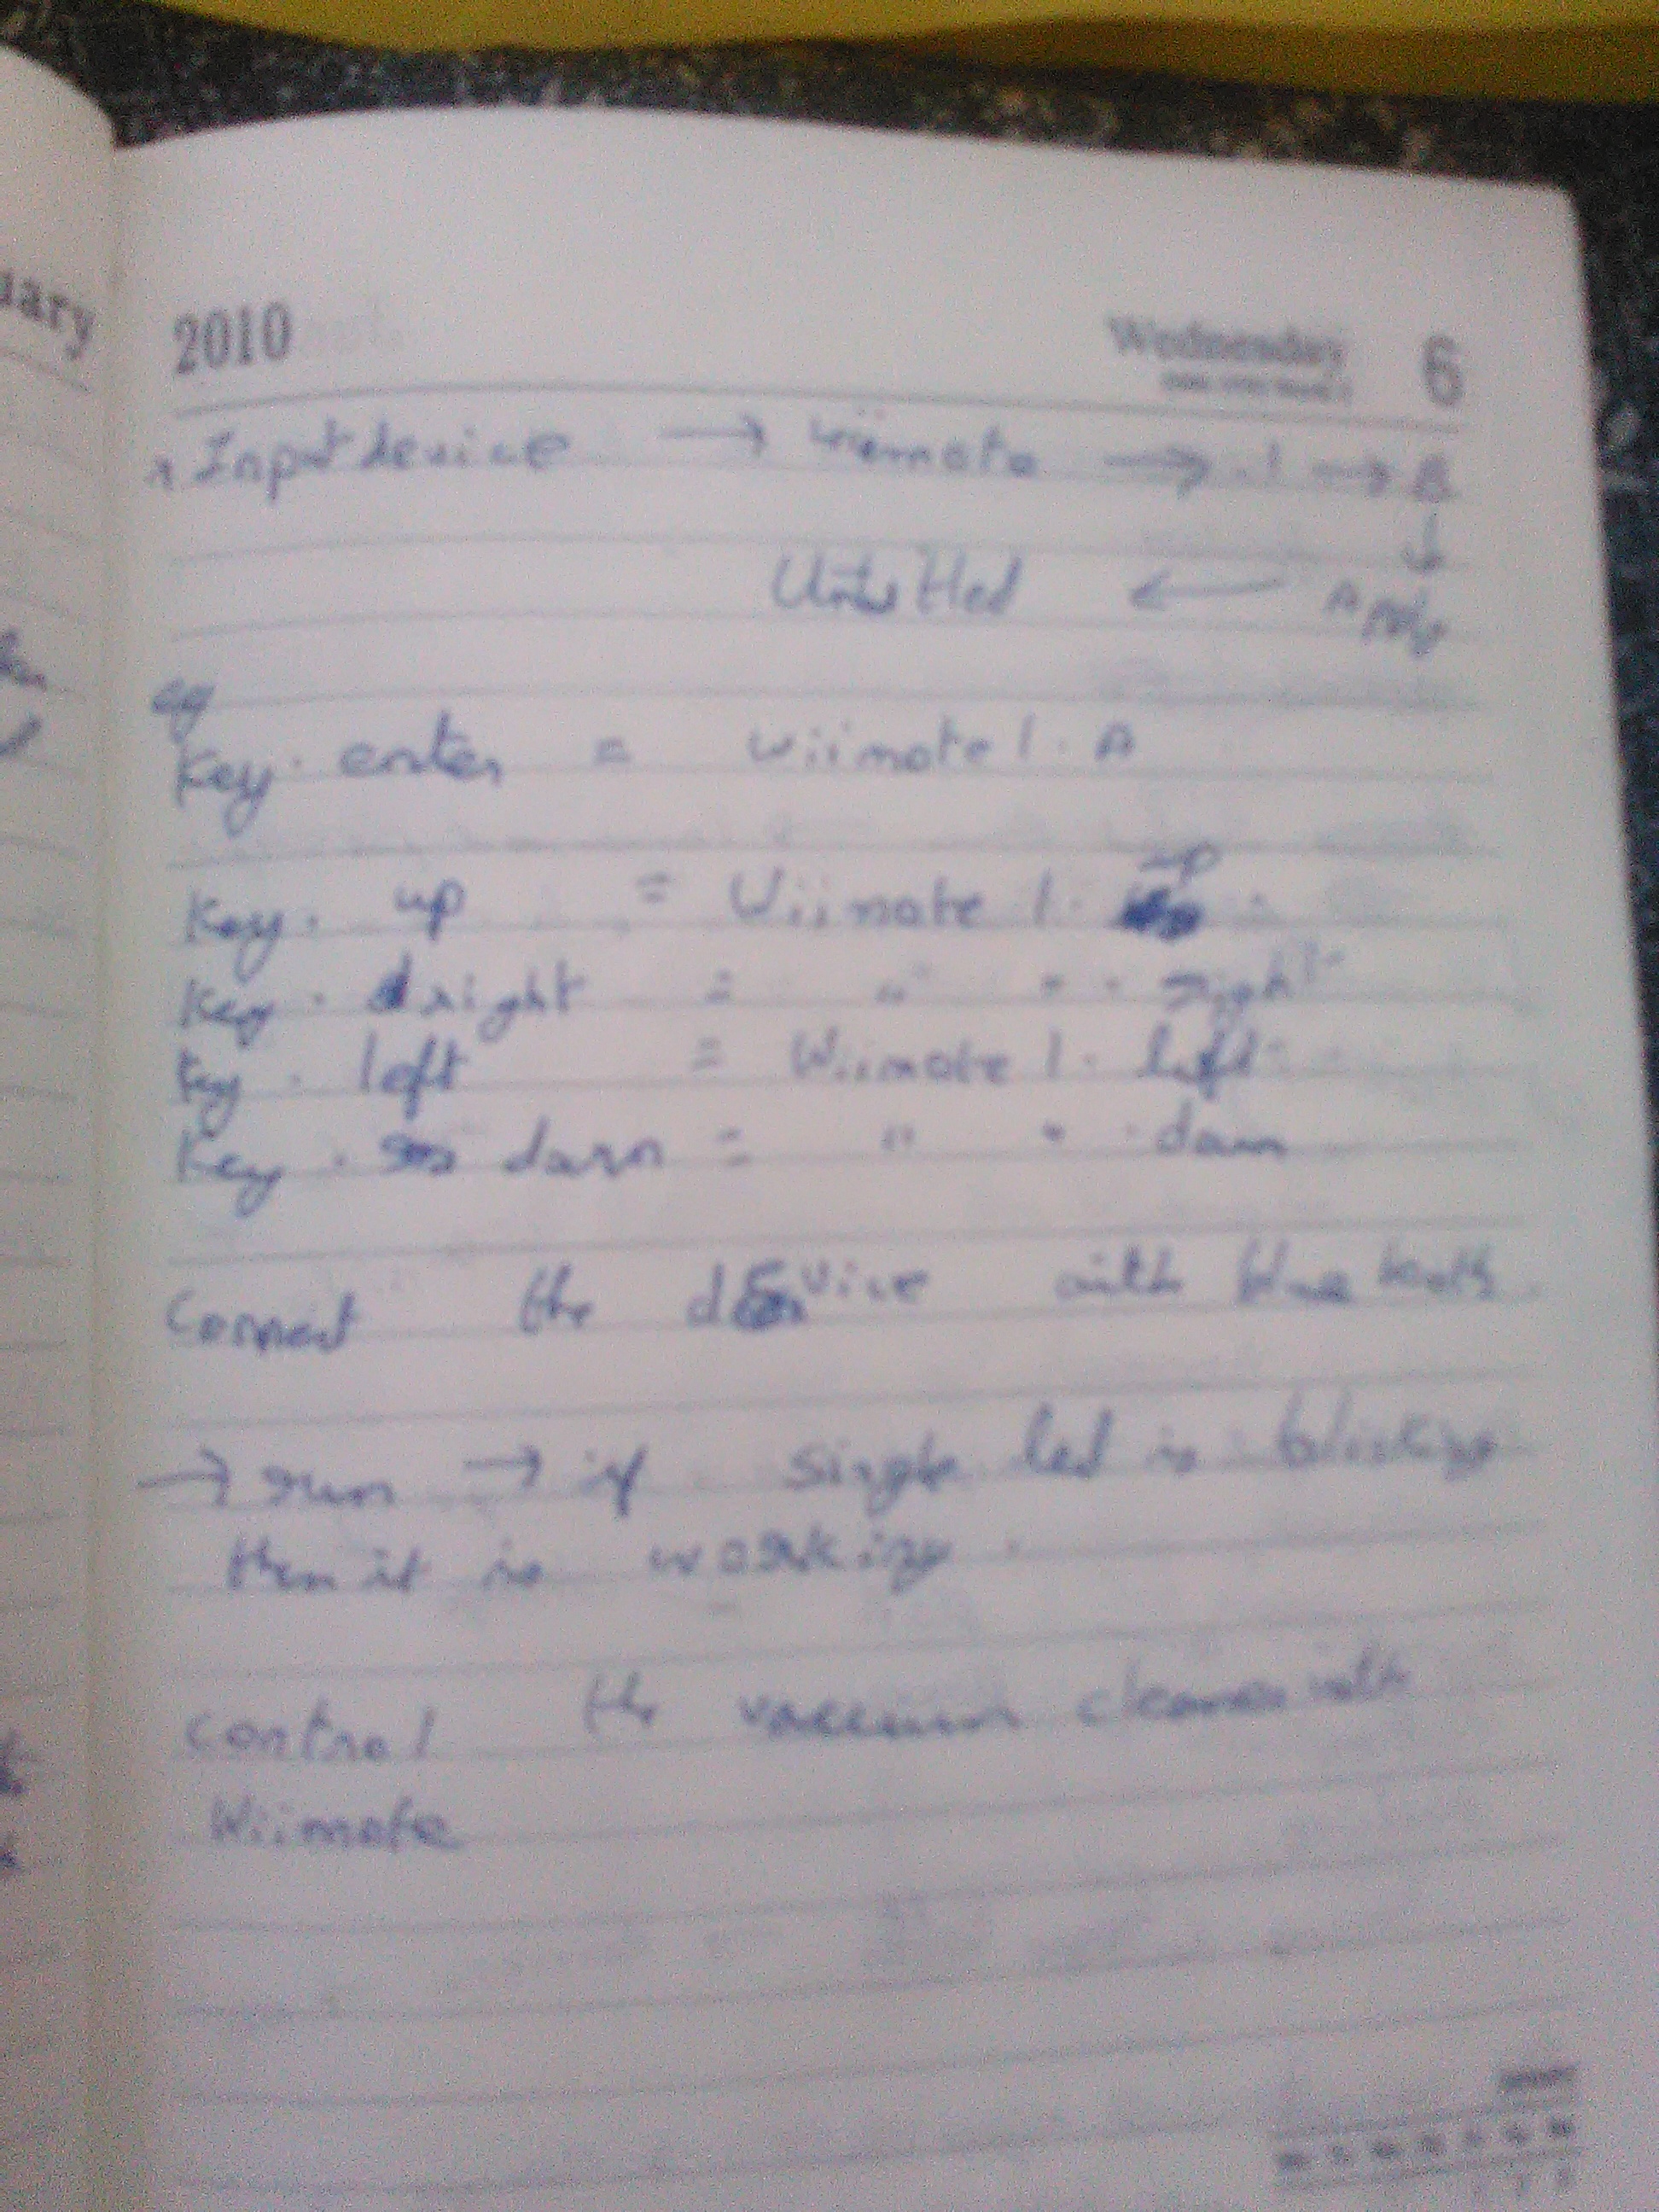 uary
2010 Wednesday 6
Input device → wiimote → 1 → B
↓
Untitled ←
eg
Key. enter = wiimote 1. A
Key. up = Wiimote 1. up
Key. right = " " . right
Key. left = Wiimote 1. left
Key. down = " " . down
Connect the device with blue tooth.
→ run → if single led is blinking
then it is working.
Control the vaccum cleaner with
Wiimote